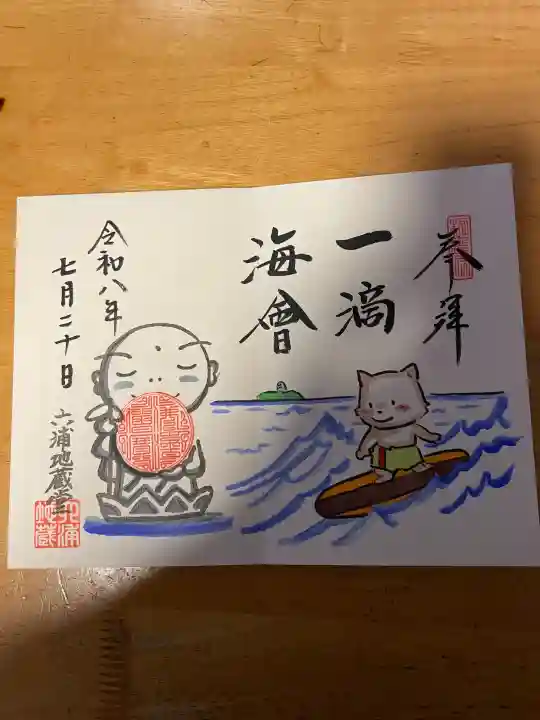 奉拝
一滴
海會
令和八年
七月二十日
六浦地蔵堂
六浦
地蔵